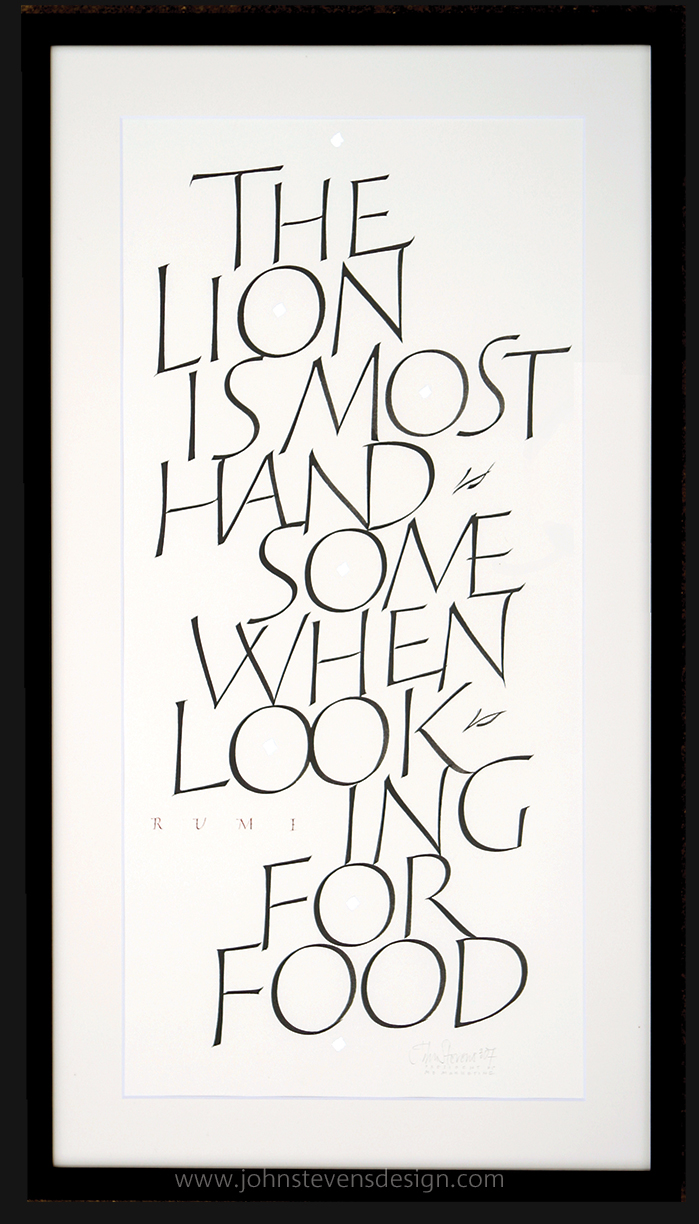 THE
LION
IS MOST
HAND-
SOME
WHEN
LOOK-
ING
RUMI
FOR
FOOD
www.johnstevensdesign.com